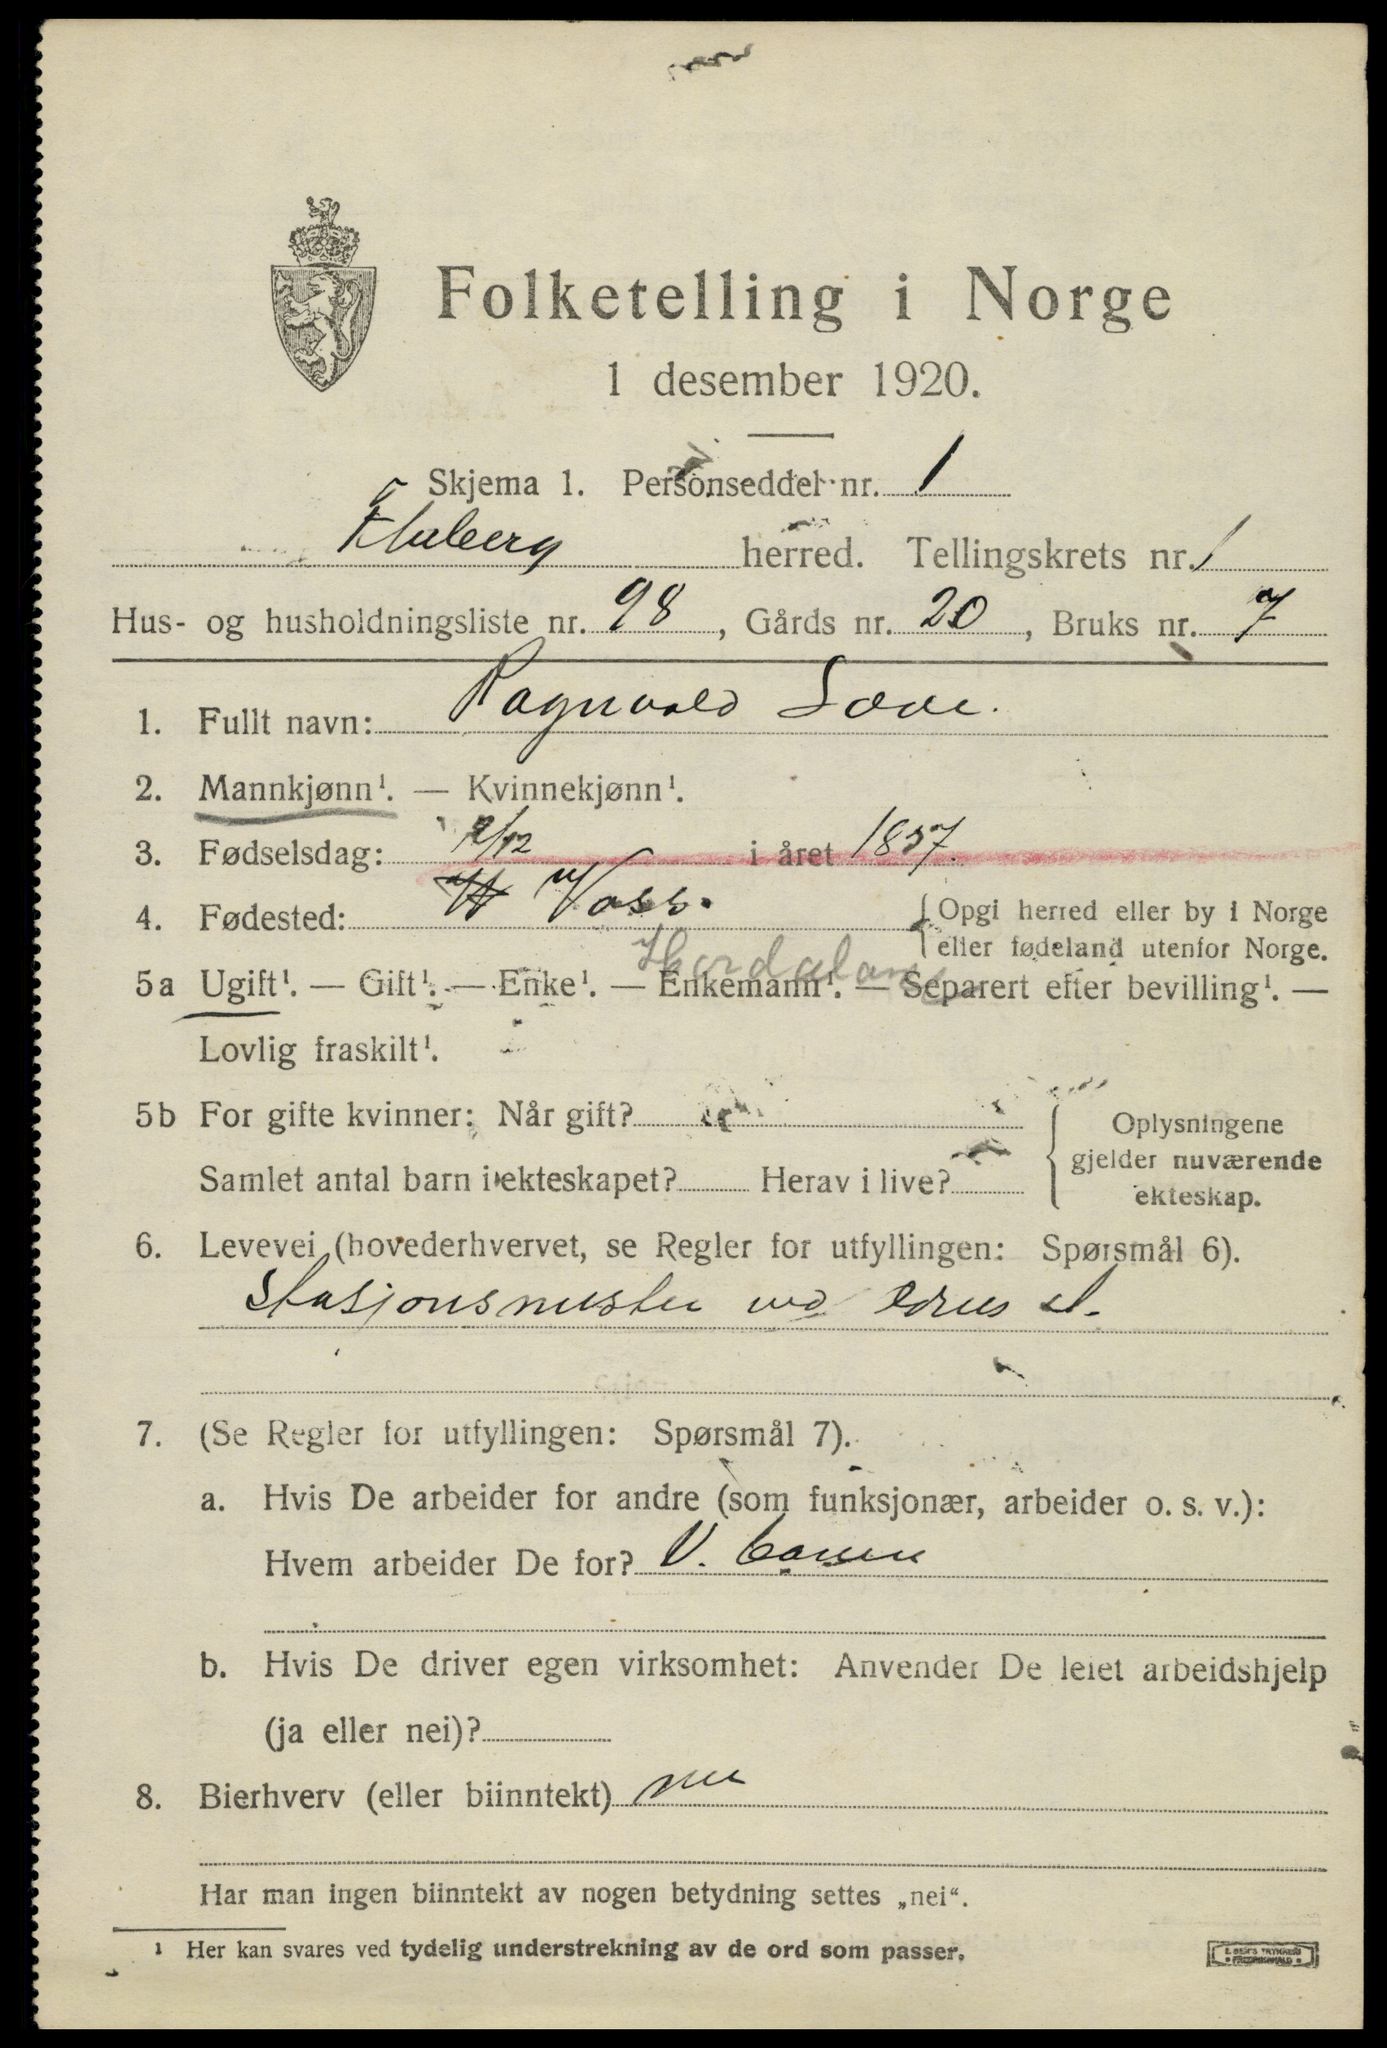 Folketelling i Norge
1 desember 1920.
Skjema 1. Personseddel nr. 1
Fluberg herred. Tellingskrets nr. 1
Hus- og husholdningsliste nr. 98, Gårds nr. 20, Bruks nr. 7
1. Fullt navn: Ragnvald
2. Mannkjønn¹. — Kvinnekjønn¹.
3. Fødselsdag: 12/12 i året 1857.
4. Fødested: Voss. {Opgi herred eller by i Norge
eller fødeland utenfor Norge.
Hordaland
5a Ugift¹. — Gift¹. — Enke¹. — Enkemann¹. — Separert efter bevilling¹. —
Lovlig fraskilt¹.
5b For gifte kvinner: Når gift? { Oplysningene
gjelder nuværende
Samlet antal barn i ekteskapet? Herav i live? ekteskap.
6. Levevei (hovederhvervet, se Regler for utfyllingen: Spørsmål 6).
Stasjonsmester ved st.
7. (Se Regler for utfyllingen: Spørsmål 7).
a. Hvis De arbeider for andre (som funksjonær, arbeider o. s. v.):
Hvem arbeider De for? V.
b. Hvis De driver egen virksomhet: Anvender De leiet arbeidshjelp
(ja eller nei)?
8. Bierhverv (eller biinntekt) nei
Har man ingen biinntekt av nogen betydning settes „nei“.
¹ Her kan svares ved tydelig understrekning av de ord som passer.